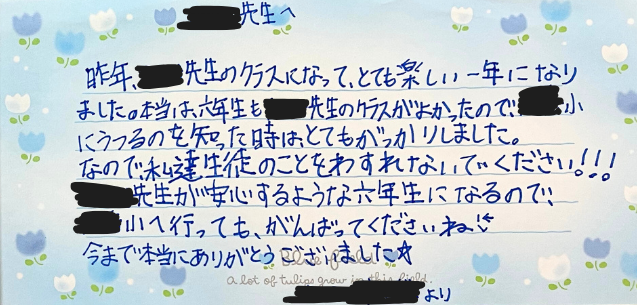 先生へ
昨年、先生のクラスになって、とても楽しい一年になり
ました。本当は、六年生も先生のクラスがよかったので、小
にうつるのを知った時は、とてもがっかりしました。
なので私達生徒のことをわすれないでください!!!
先生が安心するような六年生になるので、
小へ行っても、がんばってくださいね
今まで本当にありがとうございました☆
Blue field
A lot of tulips grow in this field.
より